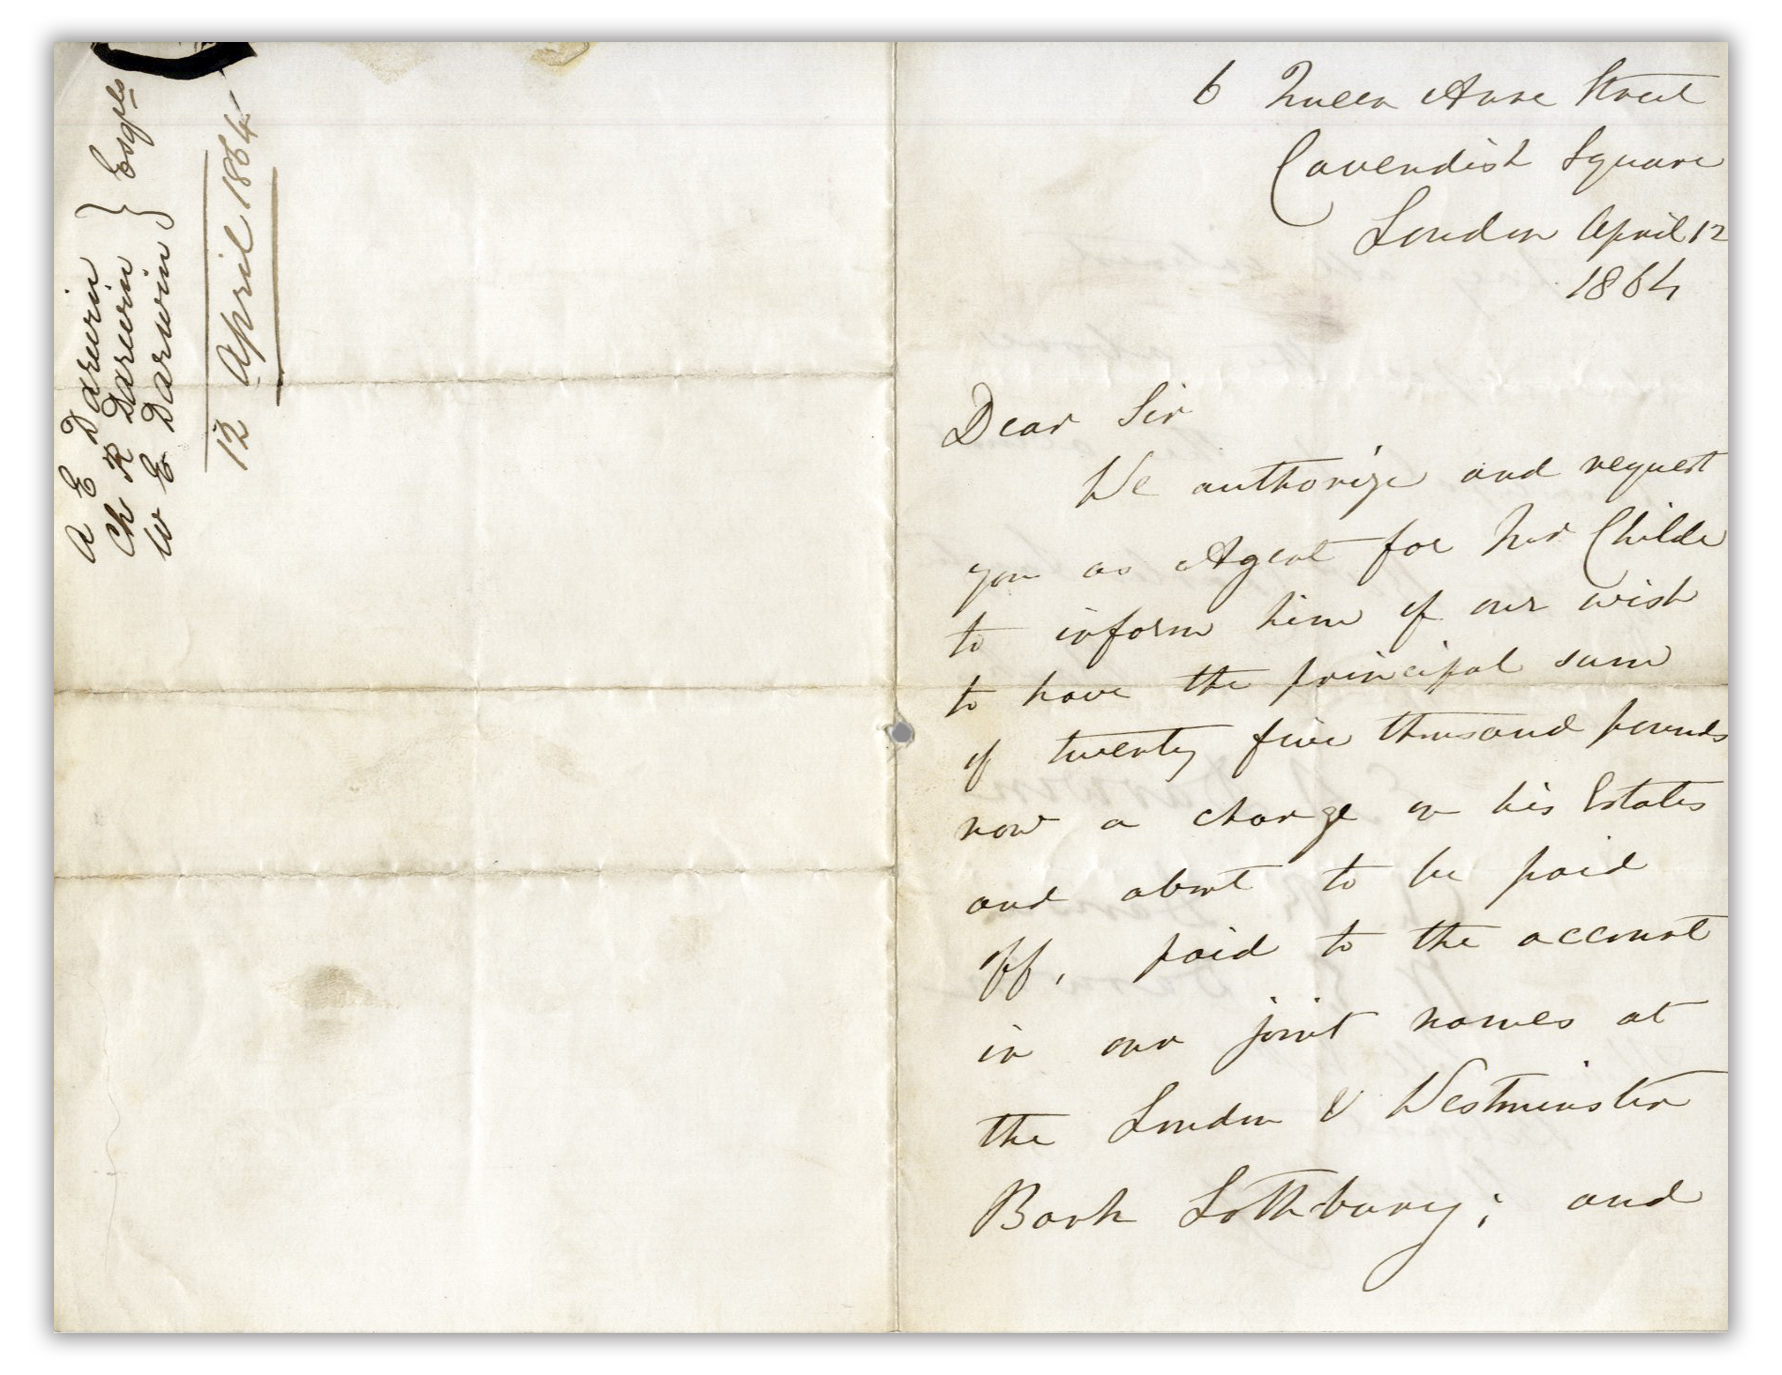 A E Darwin
Ch R Darwin
W E Darwin } Esqrs
12 April 1864
6 Queen Anne Street
Cavendish Square
London April 12
1864
Dear Sir
We authorize and request
you as Agent for Mr Childe
to inform him of our wish
to have the principal sum
of twenty five thousand pounds
now a charge on his Estates
and about to be paid
off, paid to the account
in our joint names at
the London & Westminster
Bank Lothbury; and